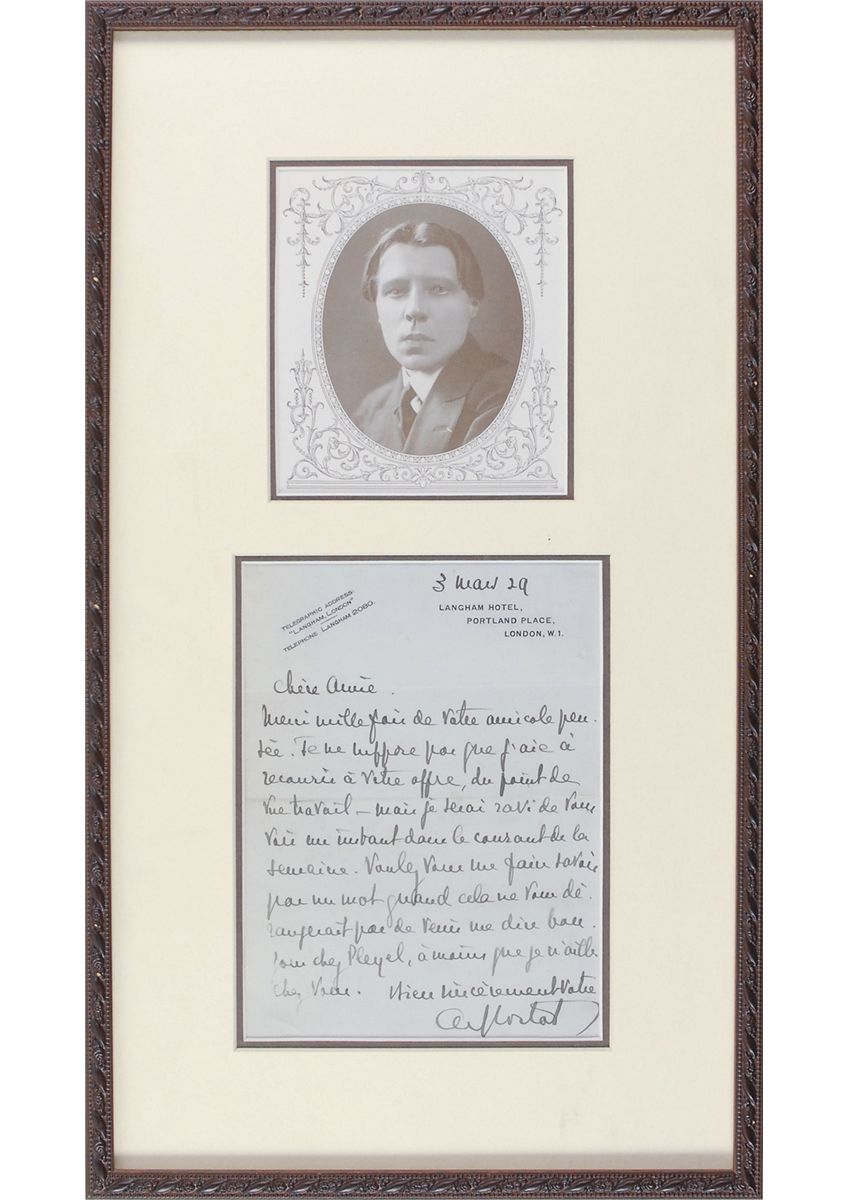 3 mars 29
TELEGRAPHIC ADDRESS:
"LANGHAM, LONDON"
TELEPHONE LANGHAM 2080.
LANGHAM HOTEL,
PORTLAND PLACE,
LONDON, W.1.
Chère Amie.
Merci mille fois de votre amicale pen-
sée. Je ne suppose pas que j'aie à
recourir à votre offre, du point de
vue travail - mais je serai ravi de vous
voir un instant dans le courant de la
semaine. Voulez vous me faire savoir
par un mot quand cela ne vous dé-
rangerait pas de venir me dire bon-
jour chez Pleyel, à moins que je n'aille
chez vous. Bien sincèrement votre
A. Cortot